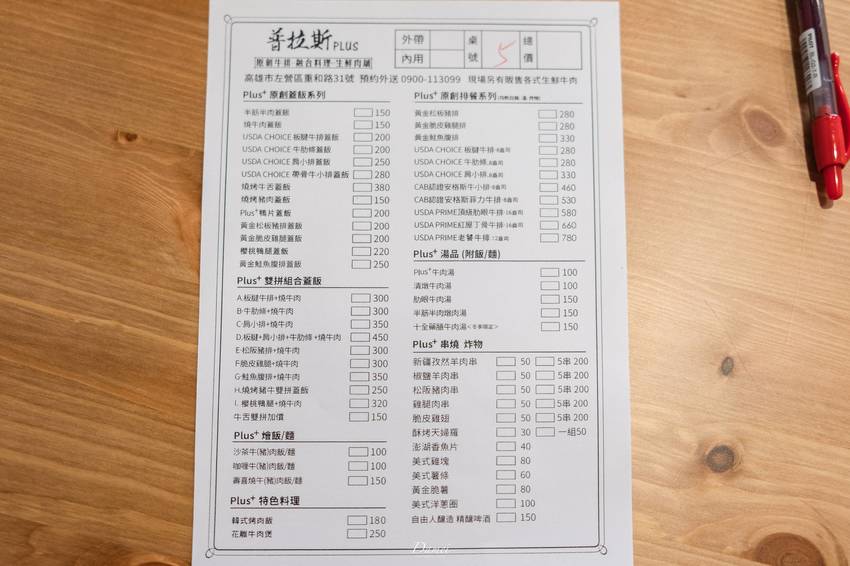 普拉斯 PLUS
原創牛排·融合料理·生鮮肉舖
外帶 桌 總
內用 號 5 價
高雄市左營區重和路31號 預約外送 0900-113099 現場另有販售各式生鮮牛肉
Plus⁺ 原創蓋飯系列
半筋半肉蓋飯 150
燒牛肉蓋飯 150
USDA CHOICE 板腱牛排蓋飯 200
USDA CHOICE 牛肋條蓋飯 200
USDA CHOICE 肩小排蓋飯 250
USDA CHOICE 帶骨牛小排蓋飯 280
燒烤牛舌蓋飯 380
燒烤豬肉蓋飯 150
Plus⁺鴨片蓋飯 200
黃金松板豬排蓋飯 200
黃金脆皮雞腿蓋飯 200
櫻桃鴨腿蓋飯 220
黃金鮭魚腹排蓋飯 250
Plus⁺ 雙拼組合蓋飯
A.板腱牛排+燒牛肉 300
B·牛肋條+燒牛肉 300
C·肩小排+燒牛肉 350
D.板腱+肩小排+牛肋條+燒牛肉 450
E·松阪豬排+燒牛肉 300
F·脆皮雞腿+燒牛肉 300
G·鮭魚腹排+燒牛肉 350
H.燒烤豬牛雙拼蓋飯 250
I. 櫻桃鴨腿+燒牛肉 320
牛舌雙拼加價 150
Plus⁺ 燴飯/麵
沙茶牛(豬)肉飯/麵 100
咖哩牛(豬)肉飯/麵 100
壽喜燒牛(豬)肉飯/麵 150
Plus⁺ 特色料理
韓式烤肉飯 180
花雕牛肉煲 250
Plus⁺ 原創排餐系列
黃金松板豬排 280
黃金脆皮雞腿排 280
黃金鮭魚腹排 330
USDA CHOICE 板腱牛排·8盎司 280
USDA CHOICE 牛肋條·8盎司 280
USDA CHOICE 肩小排·8盎司 330
CAB認證安格斯牛小排·8盎司 460
CAB認證安格斯菲力牛排·8盎司 530
USDA PRIME頂級肋眼牛排·16盎司 580
USDA PRIME紅屋丁骨牛排·16盎司 660
USDA PRIME老饕牛排·12盎司 780
Plus⁺ 湯品 (附飯/麵)
Plus⁺牛肉湯 100
清燉牛肉湯 100
肋眼牛肉湯 150
半筋半肉燉肉湯 150
十全藥膳牛肉湯<冬季限定> 150
Plus⁺ 串燒 炸物
新疆孜然羊肉串 50 5串 200
椒鹽羊肉串 50 5串 200
松阪豬肉串 50 5串 200
雞腿肉串 50 5串 200
脆皮雞翅 50 5串 200
酥烤天婦羅 30 一組50
澎湖香魚片 40
美式雞塊 80
美式薯條 60
黃金脆薯 80
美式洋蔥圈 100
自由人釀造 精釀啤酒 150